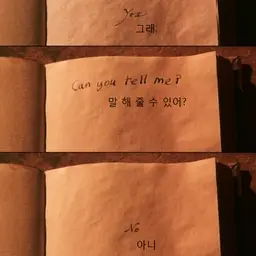 Yes.
그래.
Can you tell me?
말 해 줄 수 있어?
No
아니